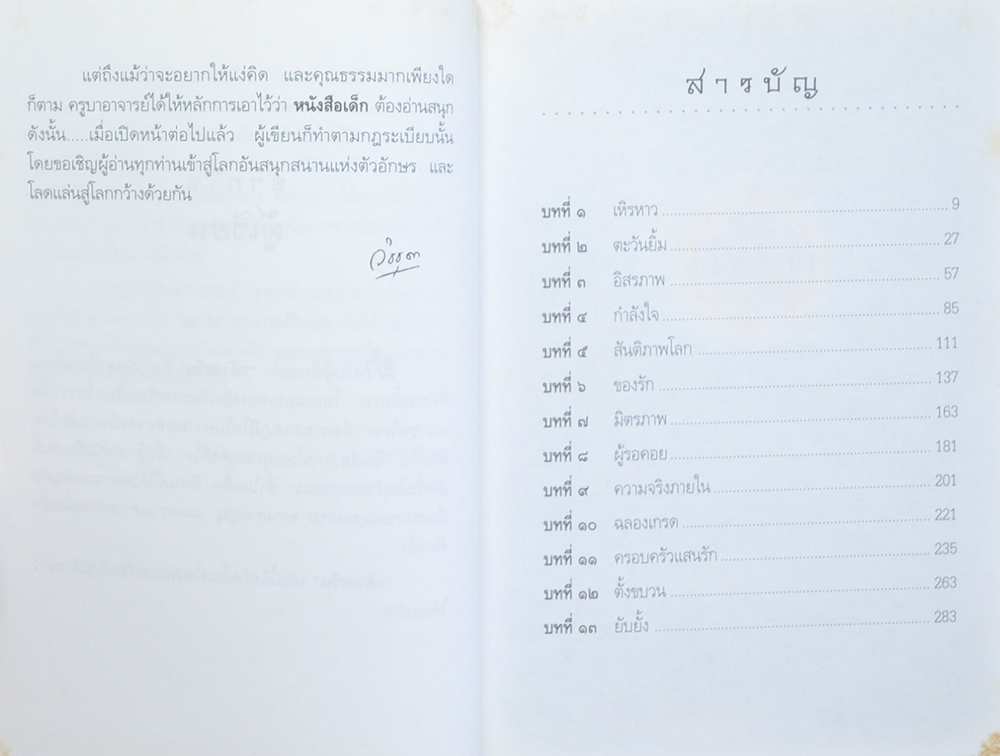 แต่ถึงแม้ว่าจะอยากให้แง่คิด และคุณธรรมมากเพียงใด
ก็ตาม ครูบาอาจารย์ได้ให้หลักการเอาไว้ว่า หนังสือเด็ก ต้องอ่านสนุก
ดังนั้น.....เมื่อเปิดหน้าต่อไปแล้ว ผู้เขียนก็ทำตามกฎระเบียบนั้น
โดยขอเชิญผู้อ่านทุกท่านเข้าสู่โลกอันสนุกสนานแห่งตัวอักษร และ
โลดแล่นสู่โลกกว้างด้วยกัน
สารบัญ
บทที่ ๑ เหิรหาว 9
บทที่ ๒ ตะวันยิ้ม 27
บทที่ ๓ อิสรภาพ 57
บทที่ ๔ กำลังใจ 85
บทที่ ๕ สันติภาพโลก 111
บทที่ ๖ ของรัก 137
บทที่ ๗ มิตรภาพ 163
บทที่ ๘ ผู้รอคอย 181
บทที่ ๙ ความจริงภายใน 201
บทที่ ๑๐ ฉลองเกรด 221
บทที่ ๑๑ ครอบครัวแสนรัก 235
บทที่ ๑๒ ตั้งขบวน 263
บทที่ ๑๓ ยับยั้ง 283